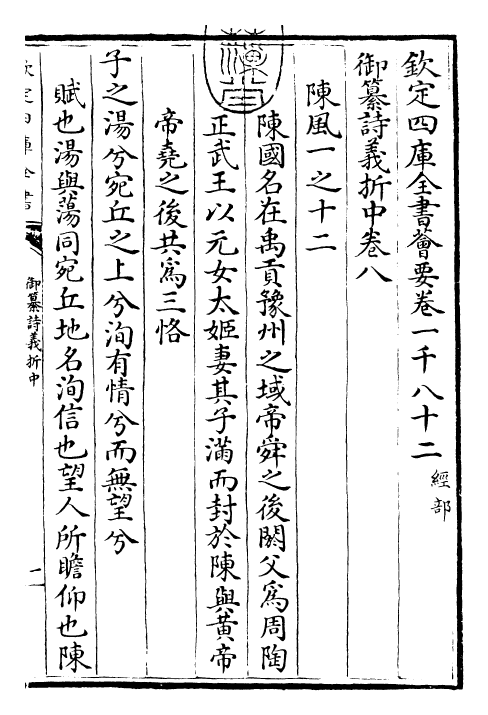 欽定四庫全書薈要卷一千八十二
經部
御纂詩義折中卷八
陳風一之十二
陳國名在禹貢豫州之域帝舜之後閼父爲周陶
正武王以元女太姬妻其子滿而封於陳與黃帝
帝堯之後共爲三恪
子之湯兮宛丘之上兮洵有情兮而無望兮
賦也湯與蕩同宛丘地名洵信也望人所瞻仰也陳
欽定四庫全書
御纂詩義折中